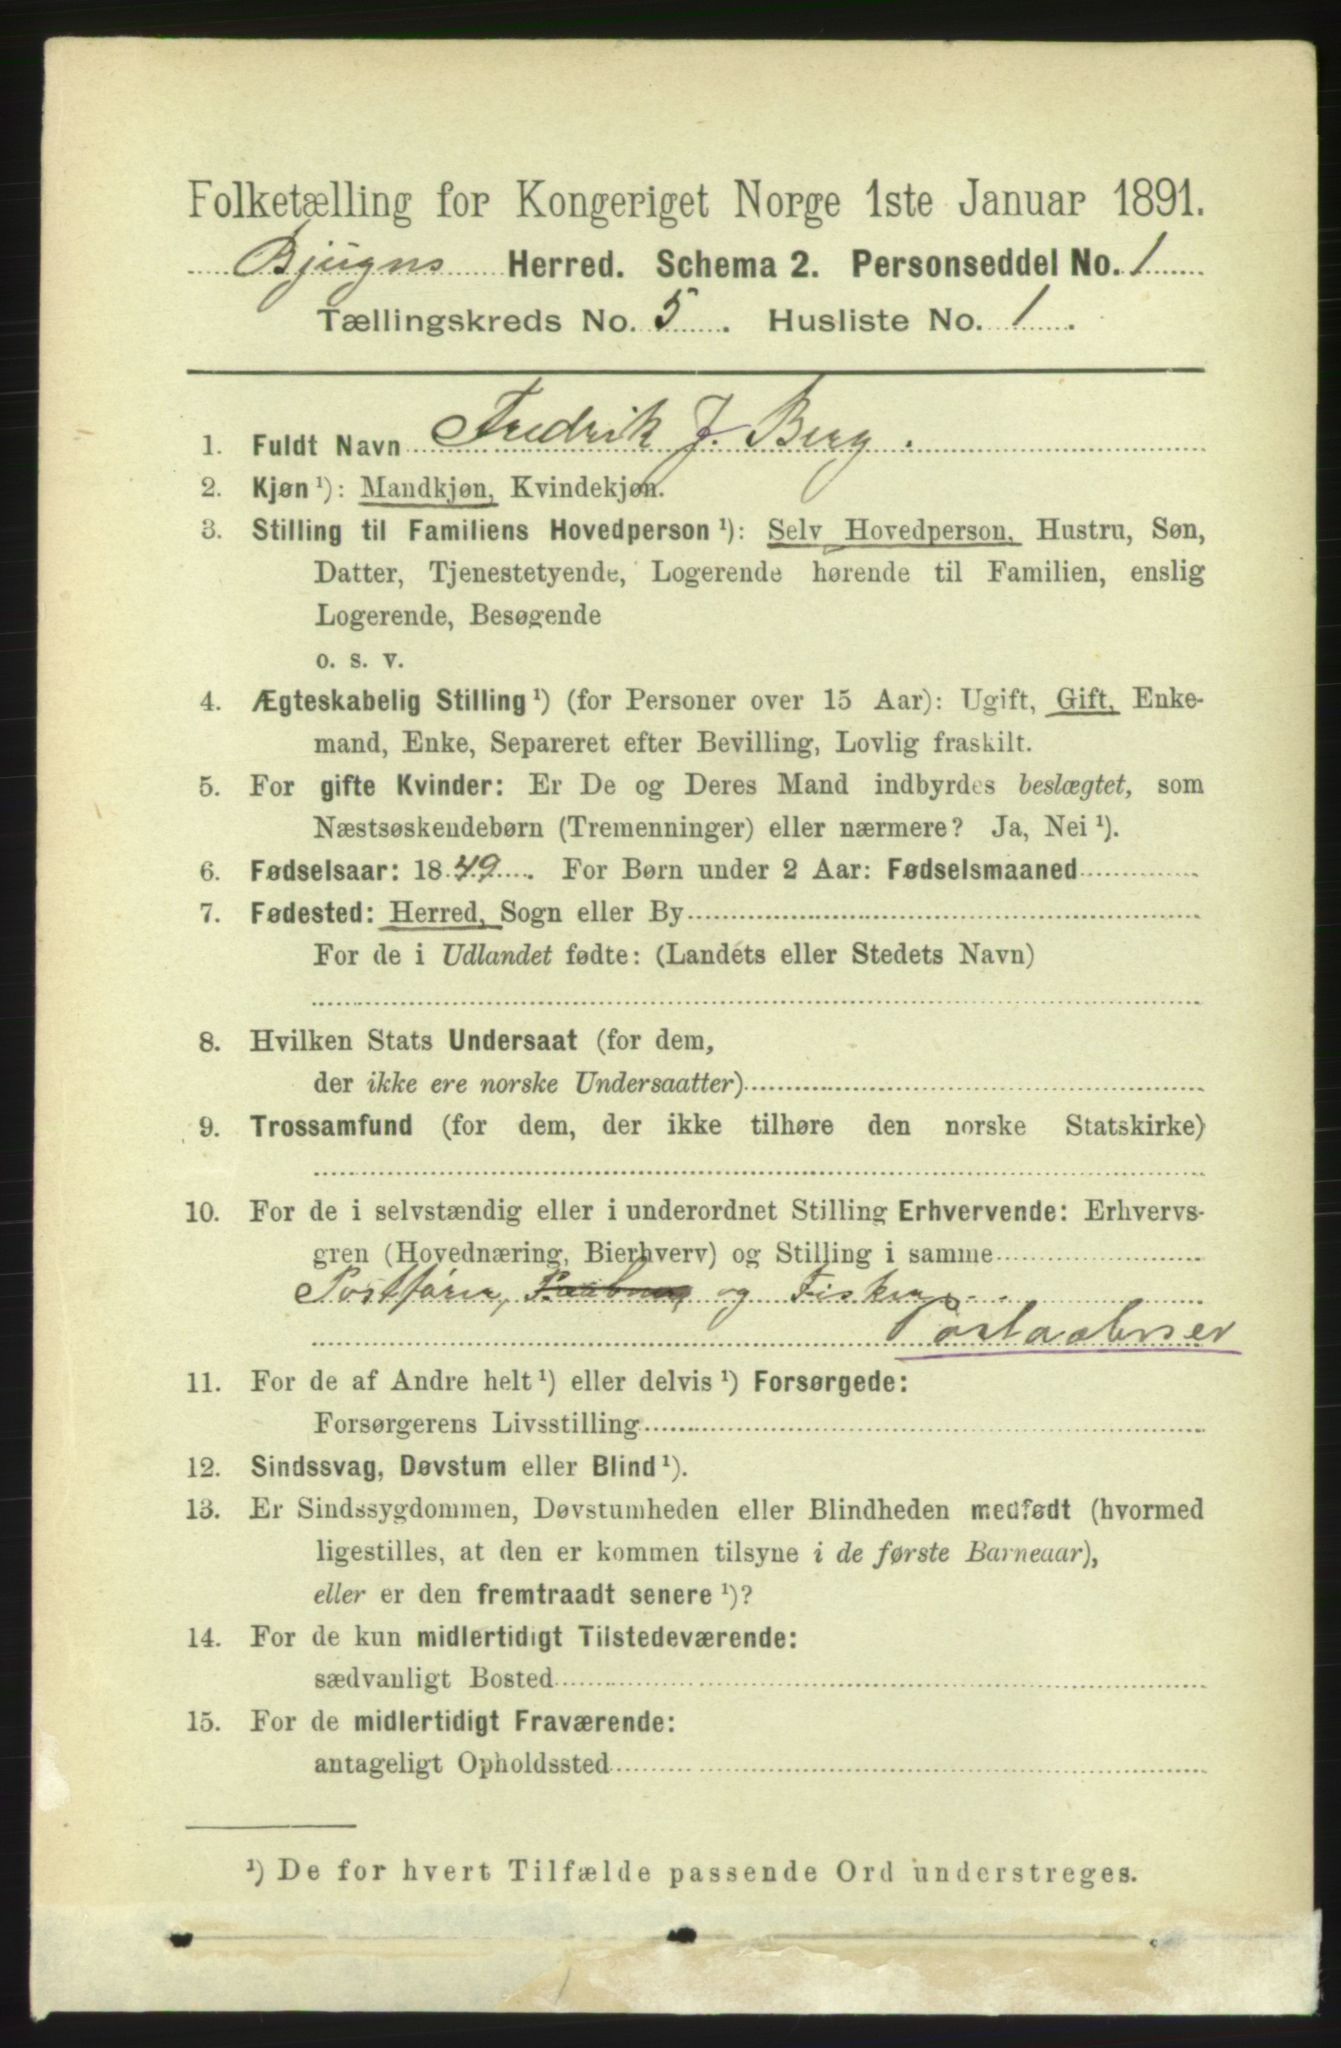 Folketælling for Kongeriget Norge 1ste Januar 1891.
Bjugns Herred. Schema 2. Personseddel No. 1
Tællingskreds No. 5. Husliste No. 1.
1. Fuldt Navn Fredrik J. Berg.
2. Kjøn ¹): Mandkjøn, Kvindekjøn.
3. Stilling til Familiens Hovedperson ¹): Selv Hovedperson, Hustru, Søn,
Datter, Tjenestetyende, Logerende hørende til Familien, enslig
Logerende, Besøgende
o. s. v.
4. Ægteskabelig Stilling ¹) (for Personer over 15 Aar): Ugift, Gift, Enke-
mand, Enke, Separeret efter Bevilling, Lovlig fraskilt.
5. For gifte Kvinder: Er De og Deres Mand indbyrdes beslægtet, som
Næstsøskendebørn (Tremenninger) eller nærmere? Ja, Nei ¹).
6. Fødselsaar: 1849. For Børn under 2 Aar: Fødselsmaaned
7. Fødested: Herred, Sogn eller By
For de i Udlandet fødte: (Landets eller Stedets Navn)
8. Hvilken Stats Undersaat (for dem,
der ikke ere norske Undersaatter)
9. Trossamfund (for dem, der ikke tilhøre den norske Statskirke)
10. For de i selvstændig eller i underordnet Stilling Erhvervende: Erhvervs-
gren (Hovednæring, Bierhverv) og Stilling i samme
Postfører, og Fisker.
Postaabner
11. For de af Andre helt ¹) eller delvis ¹) Forsørgede:
Forsørgerens Livsstilling
12. Sindssvag, Døvstum eller Blind ¹).
13. Er Sindssygdommen, Døvstumheden eller Blindheden medfødt (hvormed
ligestilles, at den er kommen tilsyne i de første Barneaar),
eller er den fremtraadt senere ¹)?
14. For de kun midlertidigt Tilstedeværende:
sædvanligt Bosted
15. For de midlertidigt Fraværende:
antageligt Opholdssted
¹) De for hvert Tilfælde passende Ord understreges.